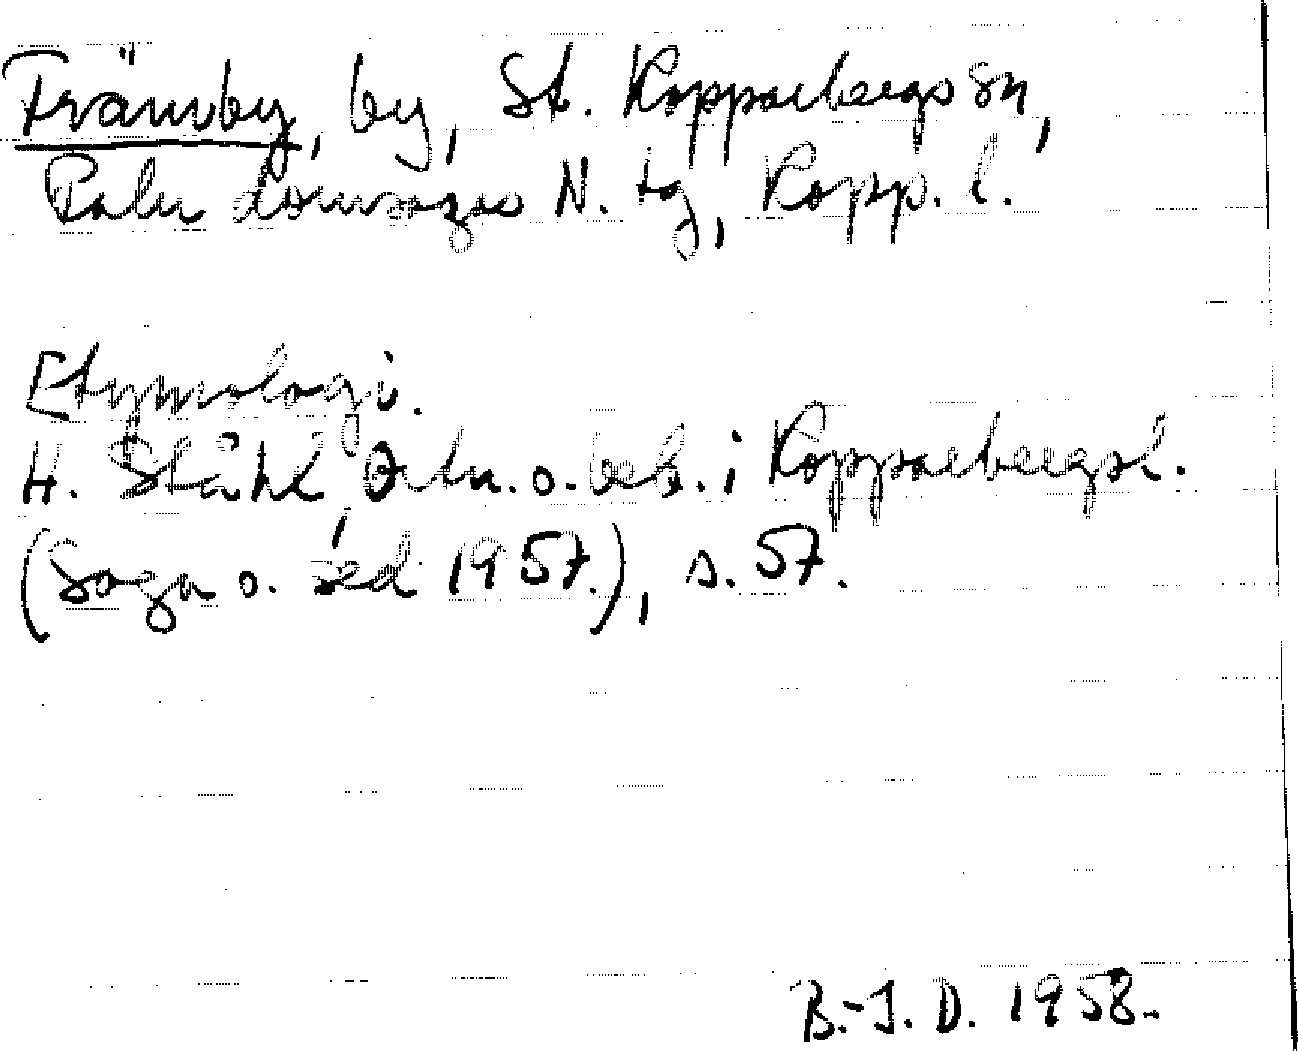 Främby, by, St. Kopparbergs sn,
Falu domsagas N. tg, Kopp. l.
Etymologi.
H. Ståhl, Ortn. o. beb. i Kopparbergsl.
(Saga o. sed 1957.), s. 57.
B.-J. D. 1958.